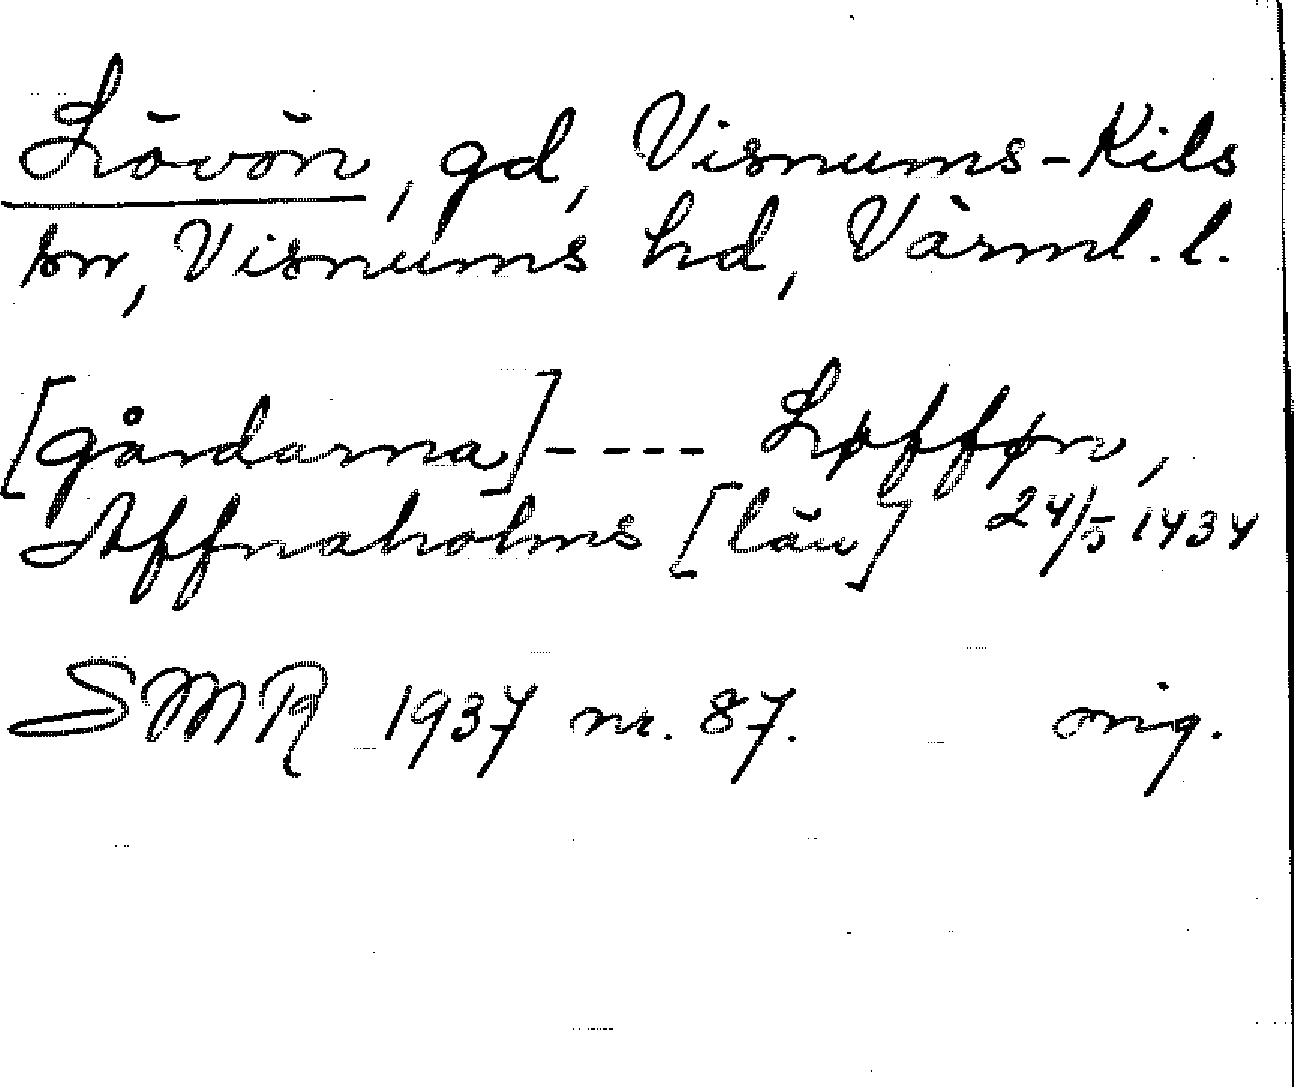 Lövön, gd, Visnums-Kils
sn, Visnums hd, Värml. l.
[gårdarna]---- Løfføn,
Agffnaholms [län] 24/5 1434
SMR 1937 nr. 87. orig.